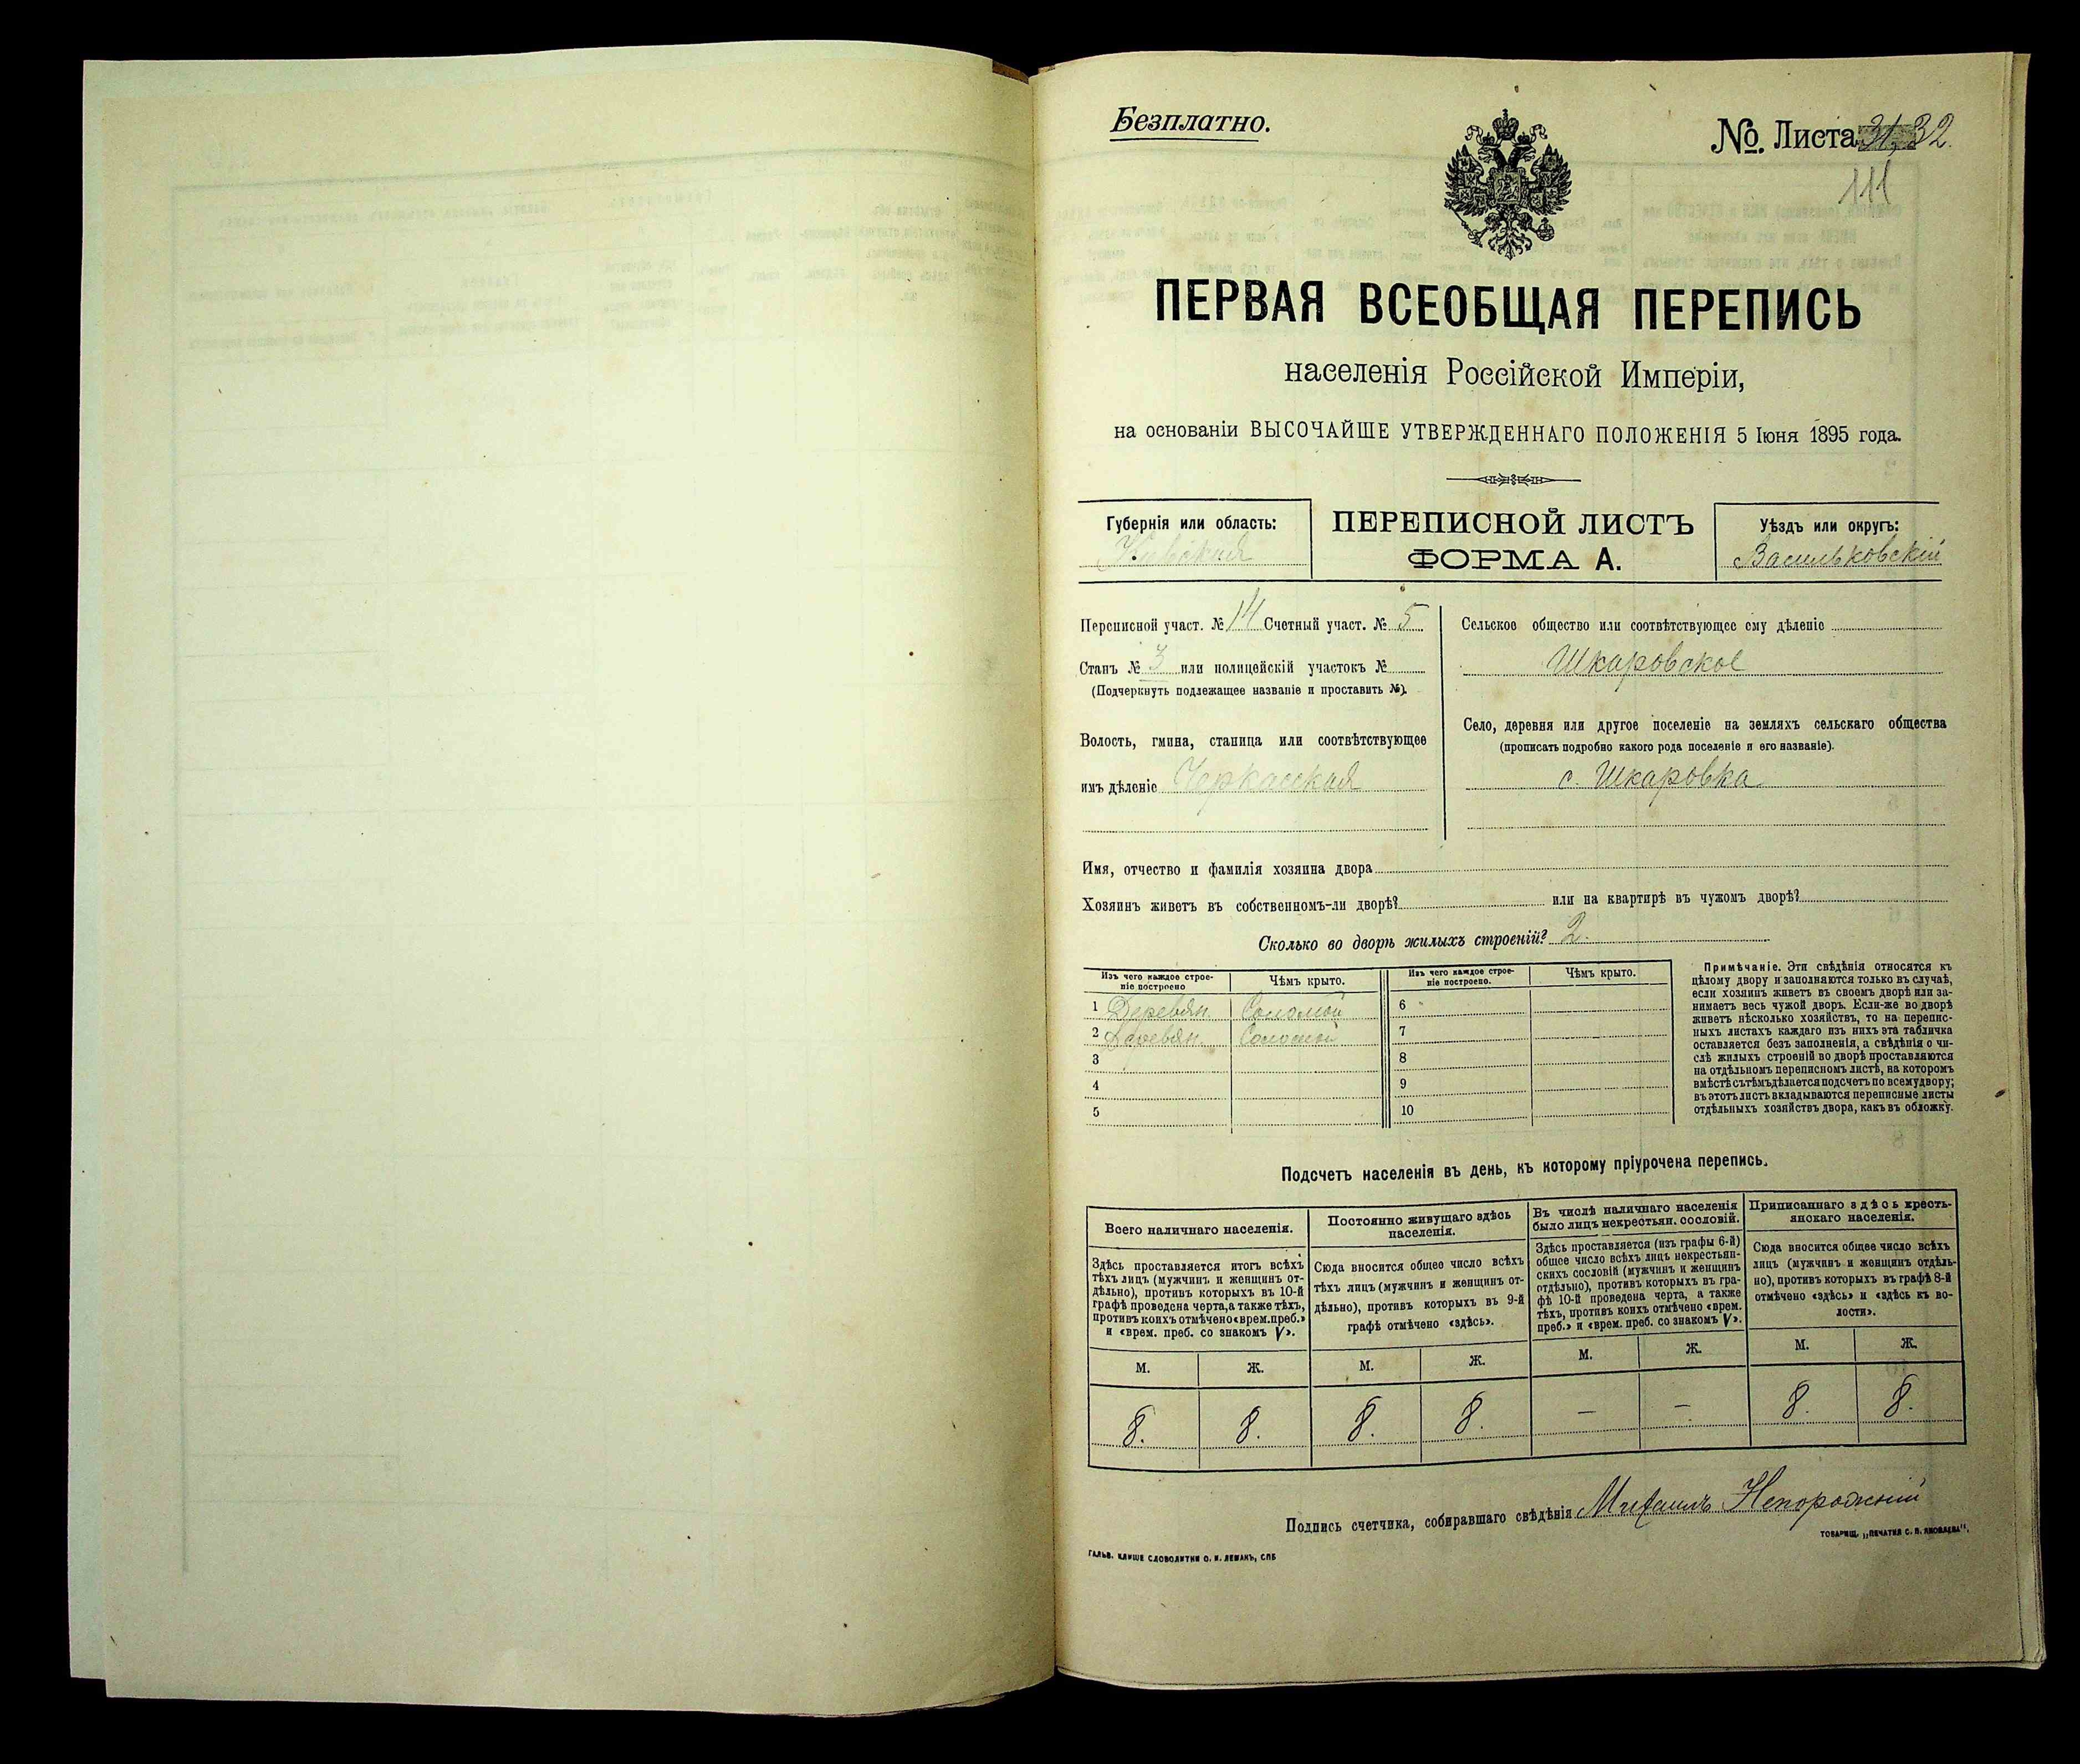 Безплатно.
№. Листа 31, 32.
111
ПЕРВАЯ ВСЕОБЩАЯ ПЕРЕПИСЬ
населенія Россійской Имперіи,
на основаніи ВЫСОЧАЙШЕ УТВЕРЖДЕННАГО ПОЛОЖЕНІЯ 5 Іюня 1895 года.
Губернія или область:
Кіевская
ПЕРЕПИСНОЙ ЛИСТЪ
ФОРМА А.
Уѣздъ или округъ:
Васильковскій
Переписной участ. № 14 Счетный участ. № 5
Станъ № 3 или полицейскій участокъ №
(Подчеркнуть подлежащее названіе и проставить №).
Волость, гмина, станица или соотвѣтствующее
имъ дѣленіе Черкасская
Сельское общество или соотвѣтствующее ему дѣленіе
Шкаровское
Село, деревня или другое поселеніе на земляхъ сельскаго общества
(прописать подробно какого рода поселеніе и его названіе).
с. Шкаровка
Имя, отчество и фамилія хозяина двора
Хозяинъ живетъ въ собственномъ-ли дворѣ? или на квартирѣ въ чужомъ дворѣ?
Сколько во дворѣ жилыхъ строеній? 2.
Изъ чего каждое строе-
ніе построено
Чѣмъ крыто.
1 Деревян. Соломой
2 Деревян. Соломой
3
4
5
Изъ чего каждое строе-
ніе построено.
Чѣмъ крыто.
6
7
8
9
10
Примѣчаніе. Эти свѣдѣнія относятся къ
цѣлому двору и заполняются только въ случаѣ,
если хозяинъ живетъ въ своемъ дворѣ или за-
нимаетъ весь чужой дворъ. Если-же во дворѣ
живетъ нѣсколько хозяйствъ, то на перепис-
ныхъ листахъ каждаго изъ нихъ эта табличка
оставляется безъ заполненія, а свѣдѣнія о чи-
слѣ жилыхъ строеній во дворѣ проставляются
на отдѣльномъ переписномъ листѣ, на которомъ
вмѣстѣ съ тѣмъ дѣлается подсчетъ по всему двору;
въ этотъ листъ вкладываются переписные листы
отдѣльныхъ хозяйствъ двора, какъ въ обложку.
Подсчетъ населенія въ день, къ которому пріурочена перепись.
Всего наличнаго населенія.
Здѣсь проставляется итогъ всѣхъ
тѣхъ лицъ (мужчинъ и женщинъ от-
дѣльно), противъ которыхъ въ 10-й
графѣ проведена черта, а также тѣхъ,
противъ коихъ отмѣчено «врем. преб.»
и «врем. преб. со знакомъ V».
Постоянно живущаго здѣсь
населенія.
Сюда вносится общее число всѣхъ
тѣхъ лицъ (мужчинъ и женщинъ от-
дѣльно), противъ которыхъ въ 9-й
графѣ отмѣчено «здѣсь».
Въ числѣ наличнаго населенія
было лицъ некрестьян. сословій.
Здѣсь проставляется (изъ графы 6-й)
общее число всѣхъ лицъ некрестьян-
скихъ сословій (мужчинъ и женщинъ
отдѣльно), противъ которыхъ въ гра-
фѣ 10-й проведена черта, а также
тѣхъ, противъ коихъ отмѣчено «врем.
преб.» и «врем. преб. со знакомъ V».
Приписаннаго здѣсь кресть-
янскаго населенія.
Сюда вносится общее число всѣхъ
лицъ (мужчинъ и женщинъ отдѣль-
но), противъ которыхъ въ графѣ 8-й
отмѣчено «здѣсь» и «здѣсь къ во-
лости».
М. Ж. М. Ж. М. Ж. М. Ж.
8. 8. 8. 8. — — 8. 8.
Подпись счетчика, собиравшаго свѣдѣнія Михаилъ Непорожній
ГАЛЬВ. КЛИШЕ СЛОВОЛИТНИ О. И. ЛЕМАНЪ, СПБ
ТОВАРИЩ. „ПЕЧАТНЯ С. П. ЯКОВЛЕВА“.